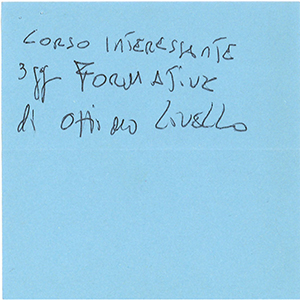 CORSO INTERESSANTE
3 gg FORMATIVE
di ottimo LIVELLO